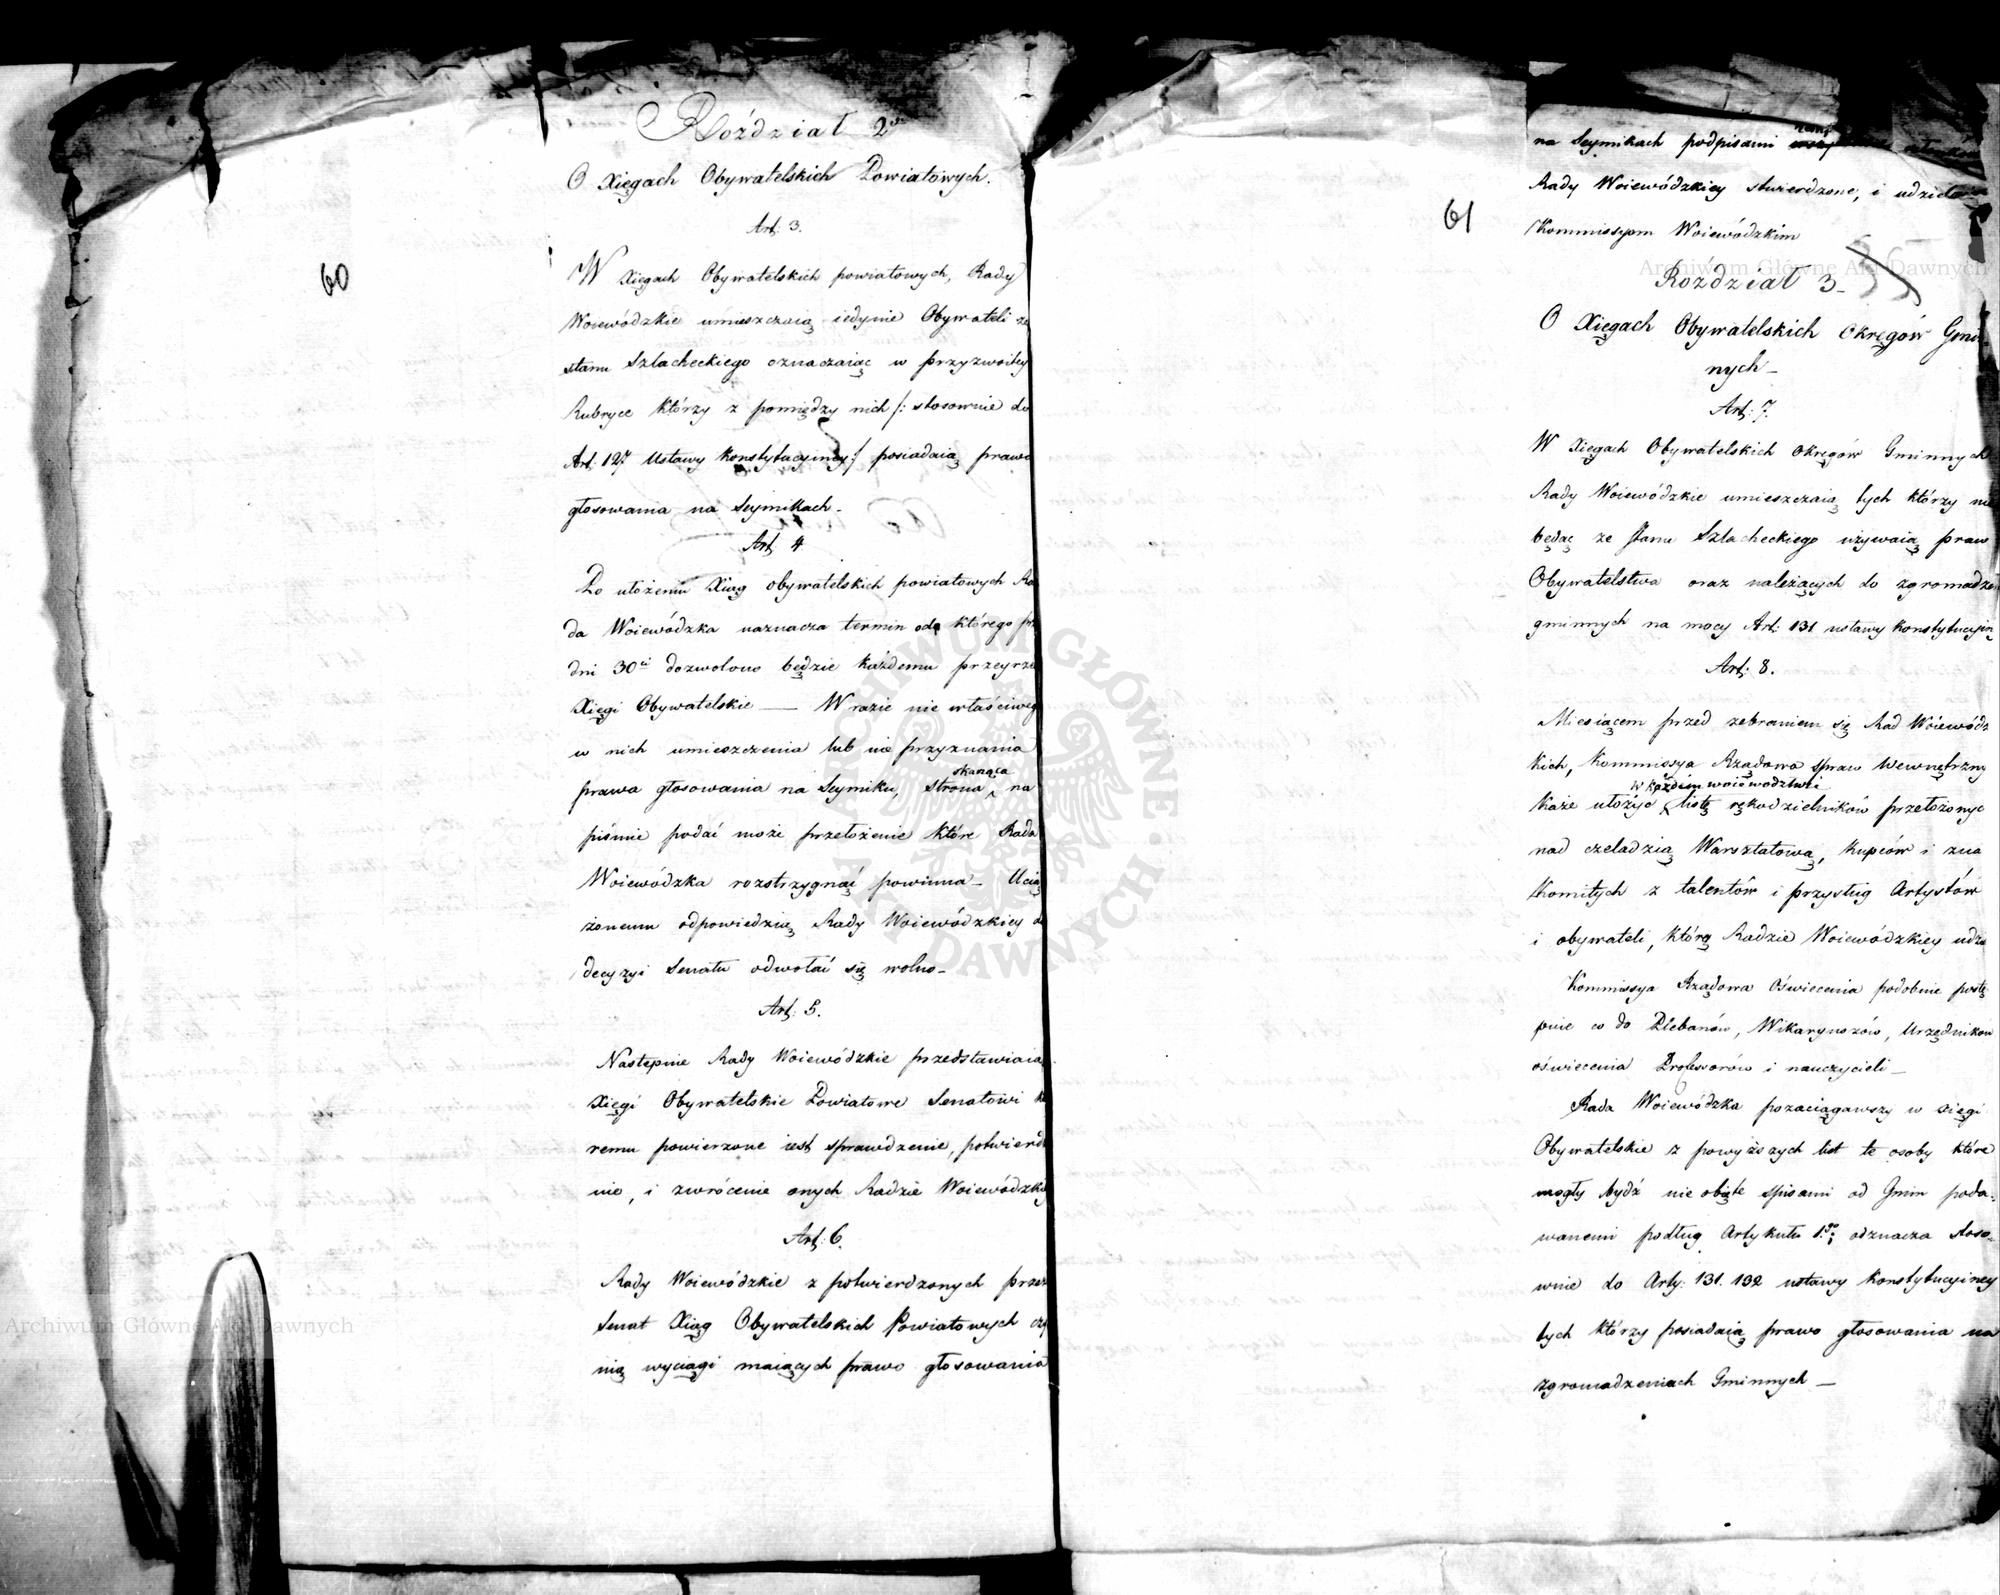 60
Roździał 2
O Xięgach Obywatelskich Powiatowych.
Art: 3.
W Xięgach Obywatelskich powiatowych, Rady
Woiewódzkie umieszczaią iedynie Obywateli ze
stanu Szlacheckiego oznaczaiąc w przyzwoitey
Rubryce którzy z pomiędzy nich /: stosownie do
Art. 127 Ustawy Konstytucyiney :/ posiadaią prawo
głosowania na Seymikach.
Art 4
Do ułożenia Xiąg obywatelskich powiatowych Ra
da Woiewódzka naznacza termin od którego prz
dni 30ci dozwolono będzie każdemu przeyrze
Xięgi Obywatelskie — W razie nie właściweg
w nich umieszczenia lub nie przyznania
prawa głosowania na Seymiku, strona skarząca na
piśmie podać może przełożenie które Rada
Woiewódzka rozstrzygnąć powinna – Ucią
żonemu odpowiedzią Rady Woiewódzkiey do
decyzyi Senatu odwołać się wolno –
Art: 5.
Następnie Rady Woiewódzkie przedstawiaią
Xięgi Obywatelskie Powiatowe Senatowi kt
remu powierzone iest sprawdzenie, potwierdze
nie, i zwrócenie onych Radzie Woiewódzkiey
Art: 6.
Rady Woiewódzkie z potwierdzonych przez
Senat Xiąg Obywatelskich Powiatowych czy
nią wyciągi maiących prawo głosowania
61
na Seymikach podpisami
Rady Woiewódzkiey stwierdzone, i udzielą
Kommissyom Woiewódzkim
35
Roździał 3 –
O Xięgach Obywatelskich Okręgów Gmin
nych –
Art: 7.
W Xięgach Obywatelskich Okręgów Gminnych
Rady Woiewódzkie umieszczaią tych którzy nie
będąc ze stanu Szlacheckiego używaią praw
Obywatelstwa oraz należących do zgromadzen
gminnych na mocy Art: 131 ustawy Konstytucyin
Art: 8.
Miesiącem przed zebraniem się Rad Woiewódz
kich, Kommissya Rządowa spraw Wewnętrzny
każe ułożyć w każdem woiewodztwie listę rękodzielników przełożonyc
nad czeladzią Warsztatową, kupców i zna
komitych z talentów i przysług Artystów
i obywateli, którą Radzie Woiewódzkiey udzie
Kommissya Rządowa Oświecenia podobnie postę
puie co do Plebanów, Wikaryuszów, Urzędników
oświecenia Professorów i nauczycieli –
Rada Woiewódzka pozaciągawszy w xięgi
Obywatelskie z powyższych list te osoby które
mogły bydź nie obięte spisami od Gmin poda-
wanemi podług Artykułu 1.go; odznacza stoso-
wnie do Arty: 131. 132 ustawy Konstytucyiney
tych którzy posiadaią prawo głosowania na
zgromadzeniach Gminnych —
Archiwum Główne Akt Dawnych
Archiwum Główne Akt Dawnych
ARCHIWUM GŁÓWNE AKT DAWNYCH